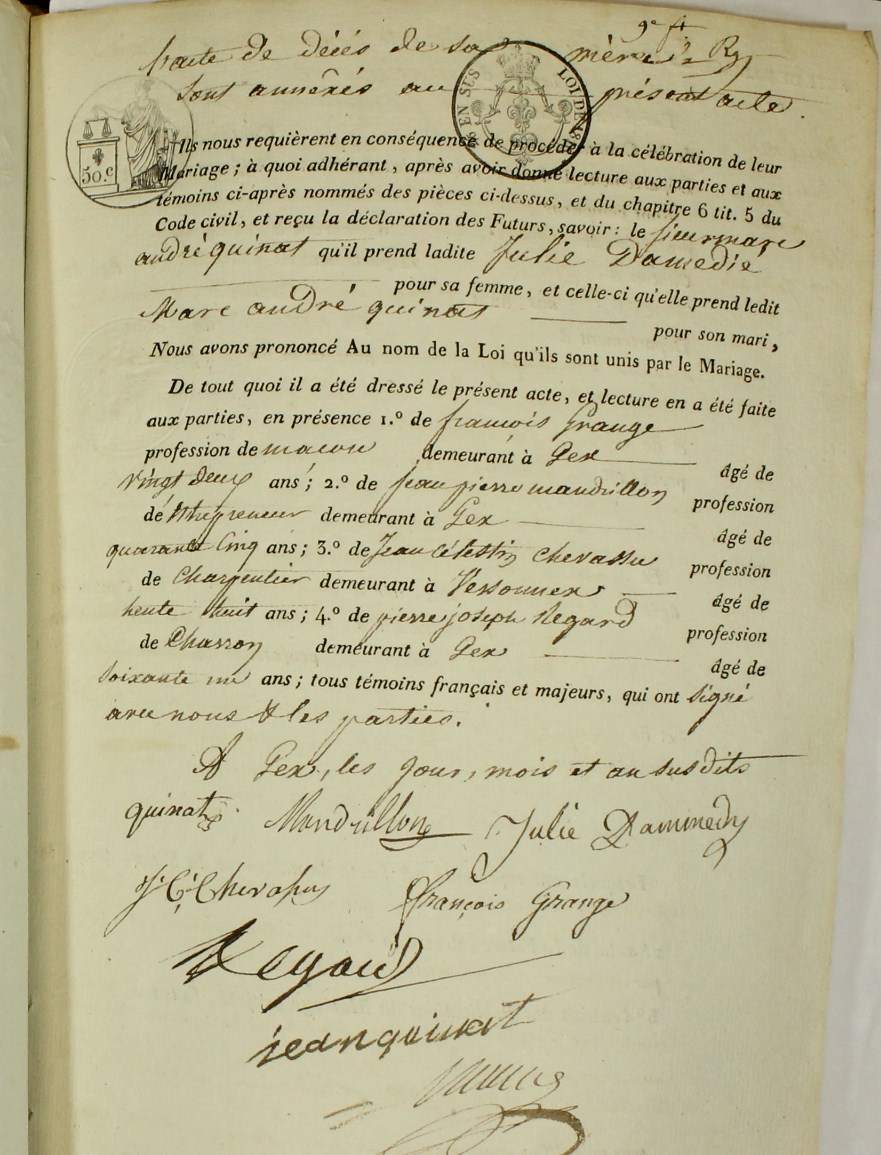 9e ft
l'acte de décès de sa mère Ry
sont annexés au présent acte.
EN SUS LOI DE
50.c
Ils nous requièrent en conséquence de procéder à la célébration de leur
Mariage ; à quoi adhérant, après avoir donné lecture aux parties et aux
témoins ci-après nommés des pièces ci-dessus, et du chapitre 6 tit. 5 du
Code civil, et reçu la déclaration des Futurs, savoir : le sieur marc
andré quinat qu'il prend ladite Julie Damedié
pour sa femme, et celle-ci qu'elle prend ledit
Marc andré quinat pour son mari,
Nous avons prononcé Au nom de la Loi qu'ils sont unis par le Mariage.
De tout quoi il a été dressé le présent acte, et lecture en a été faite
aux parties, en présence 1.º de françois Grange
profession de macon demeurant à Gex âgé de
vingt deux ans ; 2.º de jean pierre mandrillon profession
d'entrepreneur demeurant à Gex âgé de
quarante cinq ans ; 3.º de Jean Célestin chevassu profession
de Charpentier demeurant à Versonnex âgé de
trente huit ans ; 4.º de pierre joseph Regard profession
de Charron demeurant à Gex âgé de
soixante un ans ; tous témoins français et majeurs, qui ont signé
avec nous & les parties.
A Gex, les jour, mois et an susdits
quinat Mandrillon Julie Dammedy
J. C. Chevassus françois Grange
Regard
jean quinat